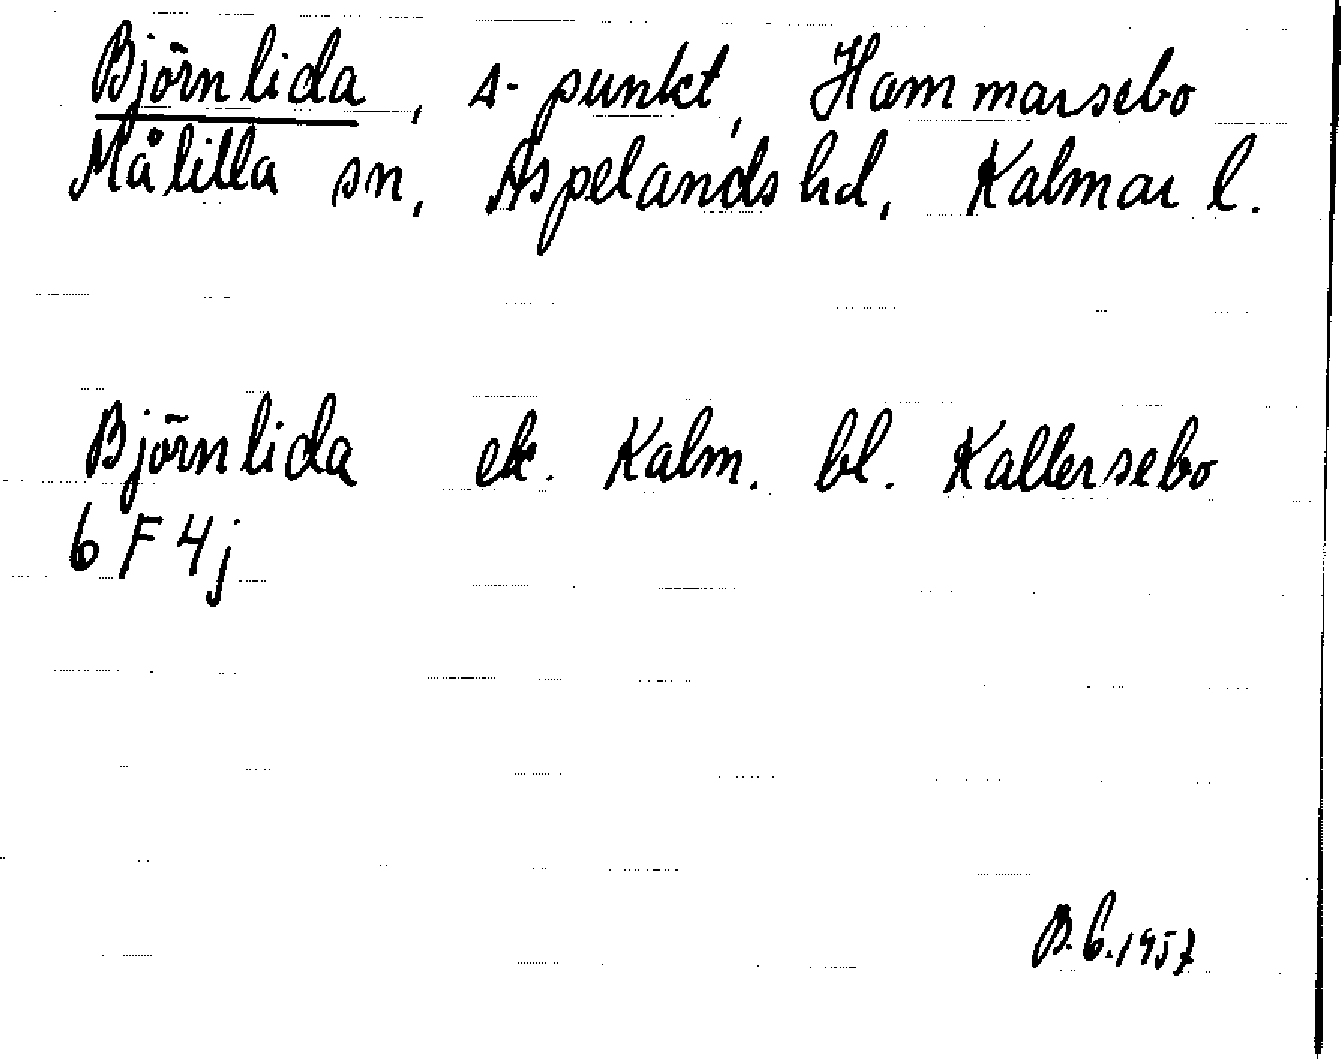 Björnlida, s-punkt, Hammarsebo
Målilla sn, Aspelands hd, Kalmar l.
Björnlida ek. Kalm. bl. Kallersebo
6 F 4j
B.6.1957